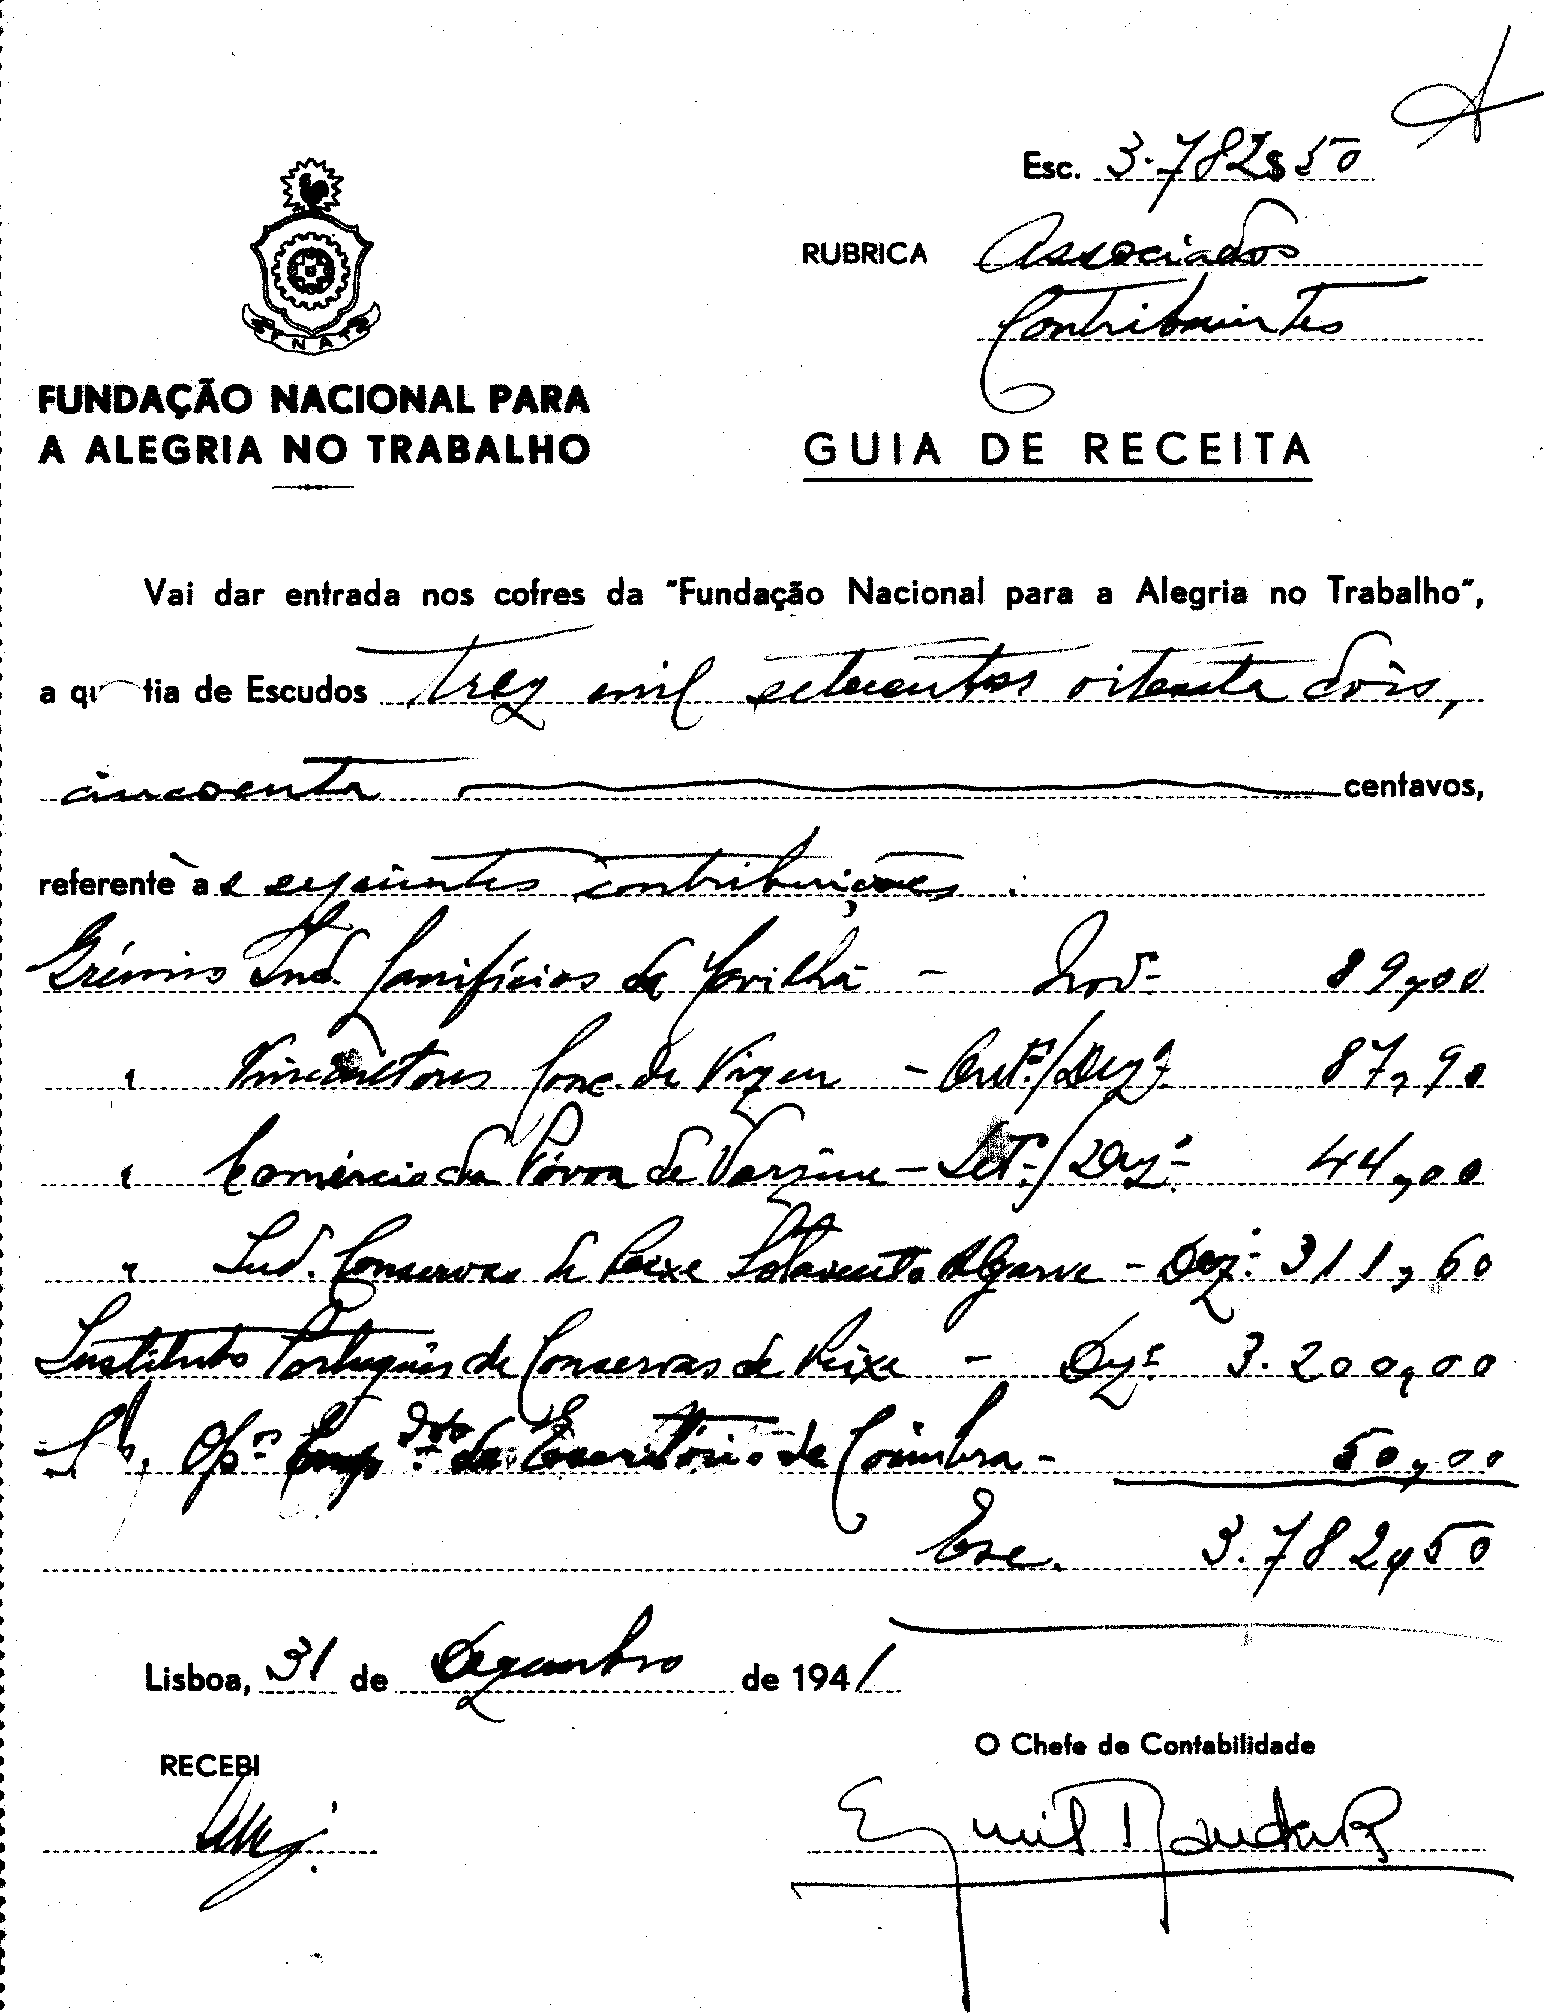 Esc. 3.782$50
RUBRICA Associados
Contribuintes
FNAT
FUNDAÇÃO NACIONAL PARA
A ALEGRIA NO TRABALHO
GUIA DE RECEITA
Vai dar entrada nos cofres da "Fundação Nacional para a Alegria no Trabalho",
a quantia de Escudos trez mil setecentos oitenta dois,
cincoenta centavos,
referente às seguintes contribuições:
Grémio Ind. Lanifícios da Covilhã - Novº 89,00
" Vinicultores Conc. de Vizeu - Outº/Dezº 87,90
" Comércio da Póvoa de Varzim - Setº/Dezº 44,00
" Ind. Conservas de Peixe Sotavento Algarve - Dezº 311,60
Instituto Português de Conservas de Peixe - Dezº 3.200,00
de Escritório de Coimbra - 50,00
Esc. 3.782,50
Lisboa, 31 de Dezembro de 1941
O Chefe de Contabilidade
RECEBI